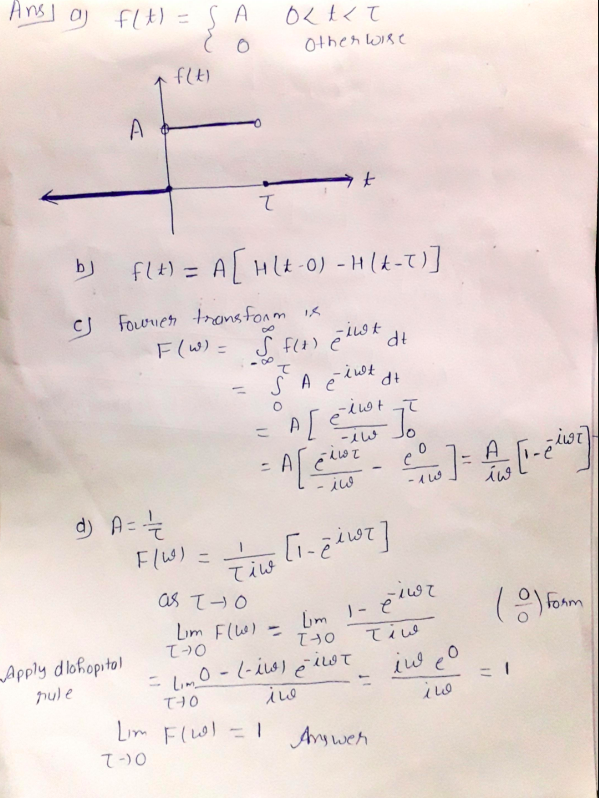 Ans] a) f(t) = { A 0 < t < τ
0 otherwise
f(t)
A
τ t
b) f(t) = A[ H(t-0) - H(t-τ)]
c) Fourier transform is
F(ω) = ∫_{-∞}^{∞} f(t) e^{-iωt} dt
= ∫_0^τ A e^{-iωt} dt
= A [ e^{-iωt} / -iω ]_0^τ
= A[ e^{-iωτ} / -iω - e^0 / -iω ] = A/iω [1-e^{-iωτ}]
d) A = 1/τ
F(ω) = 1/τiω [1-e^{-iωτ}]
as τ→0
Lim_{τ→0} F(ω) = Lim_{τ→0} 1-e^{-iωτ} / τiω (0/0) Form
Apply dlohopital rule = Lim_{τ→0} 0-(-iω) e^{-iωτ} / iω = iω e^0 / iω = 1
Lim_{τ→0} F(ω) = 1 Answer